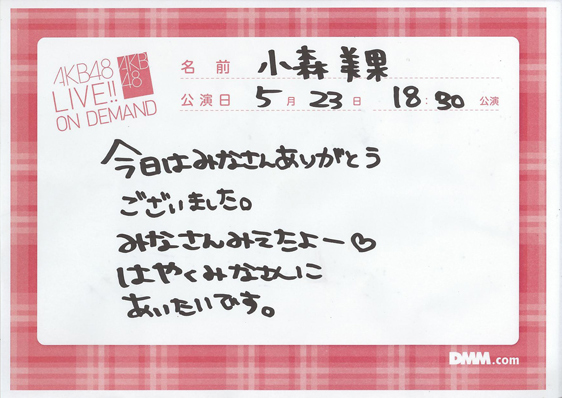 AKB48
LIVE!!
ON DEMAND
AKB
48
名前 小森美果
公演日 5月23日 18:30公演
今日はみなさんありがとう
ございました。
みなさんみえたよー♡
はやくみなさんに
あいたいです。
DMM.com